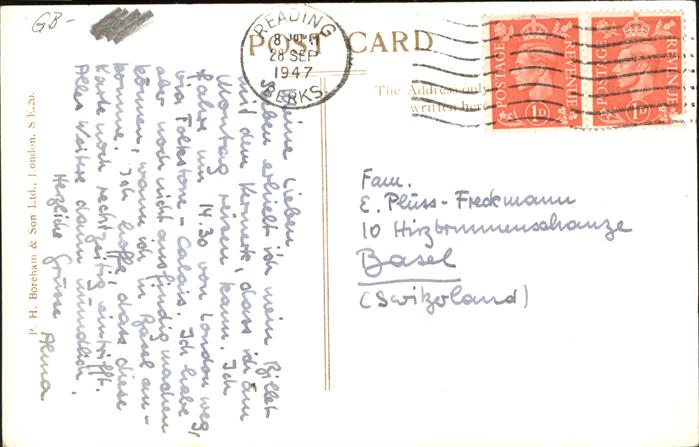 GB-
READING
8 30 PM
28 SEP
1947
BERKS.
POST CARD
The Address only
written here
POSTAGE REVENUE
1D
POSTAGE REVENUE
1D
Meine Lieben
Soeben erhielt ich mein Billet
mit dem Vermerk, dass ich am
Montag reisen kann. Ich
fahre um 14.30 von London weg,
via Folkstone - Calais. Ich habe
aber noch nicht ausfindig machen
können, wann ich in Basel an-
komme. Ich hoffe, dass diese
Karte noch rechtzeitig eintrifft.
Alles Weitere dann mündlich.
Herzliche Grüsse Alma
P. H. Boreham & Son Ltd., London, S E.20.
Fam.
E. Plüss-Freckmann
10 Hirzbrunnenschanze
Basel
(Switzerland)